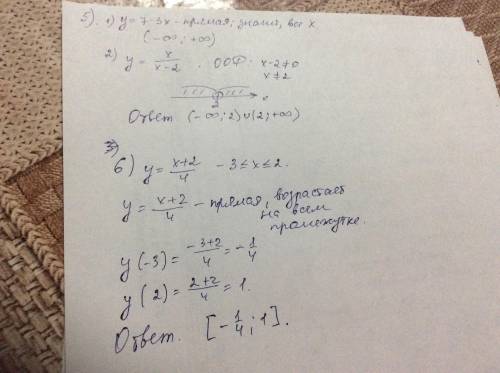 5). 1) y = 7-3x - прямая; значит, все x
(-∞; +∞)
2) y = x/(x-2) . ООФ: x-2≠0
x≠2
2 x
Ответ (-∞; 2)∪(2; +∞)
6) y = (x+2)/4 -3≤x≤2.
y = (x+2)/4 - прямая, возрастает
на всем
промежутке.
y(-3) = (-3+2)/4 = -1/4
y(2) = (2+2)/4 = 1.
Ответ. [-1/4; 1].